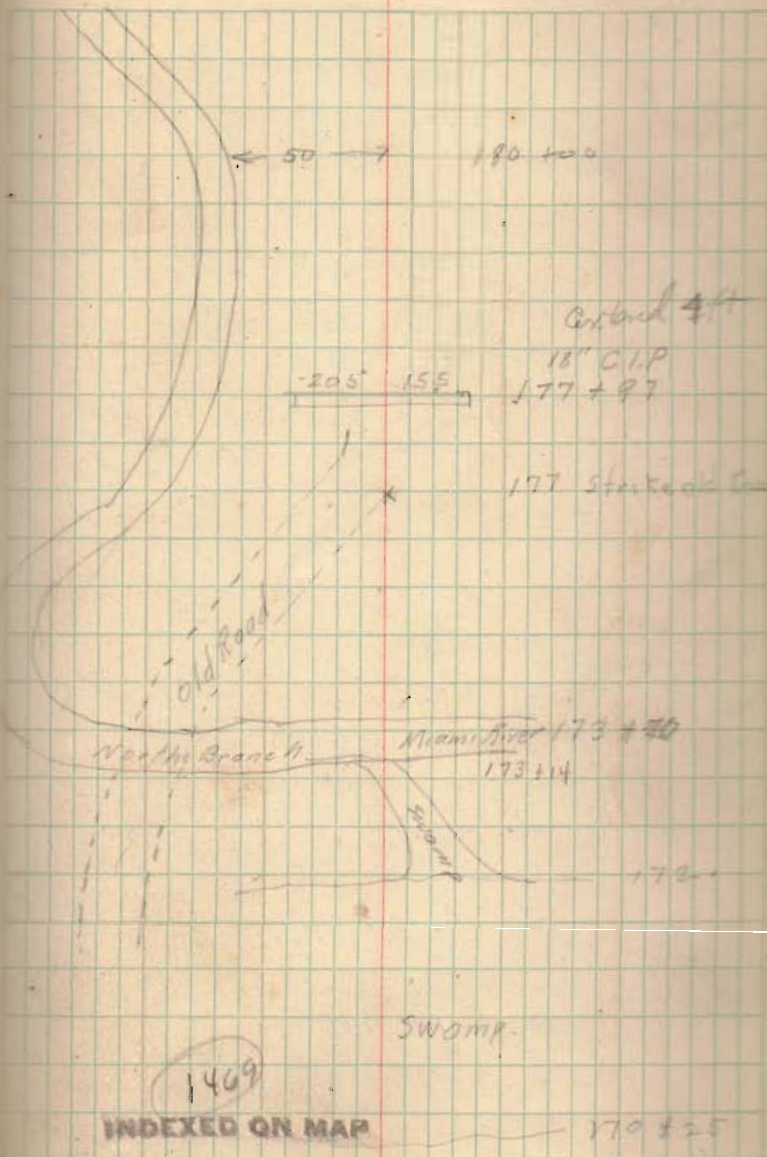 50 180 +00
4 ft
18" C.I.P
20 5 15 5 177 + 97
177 Strikes
Old Road
North Branch Miami River 173 +
173 +14
Swamp
172
Swamp.
1469
INDEXED ON MAP 170 +25